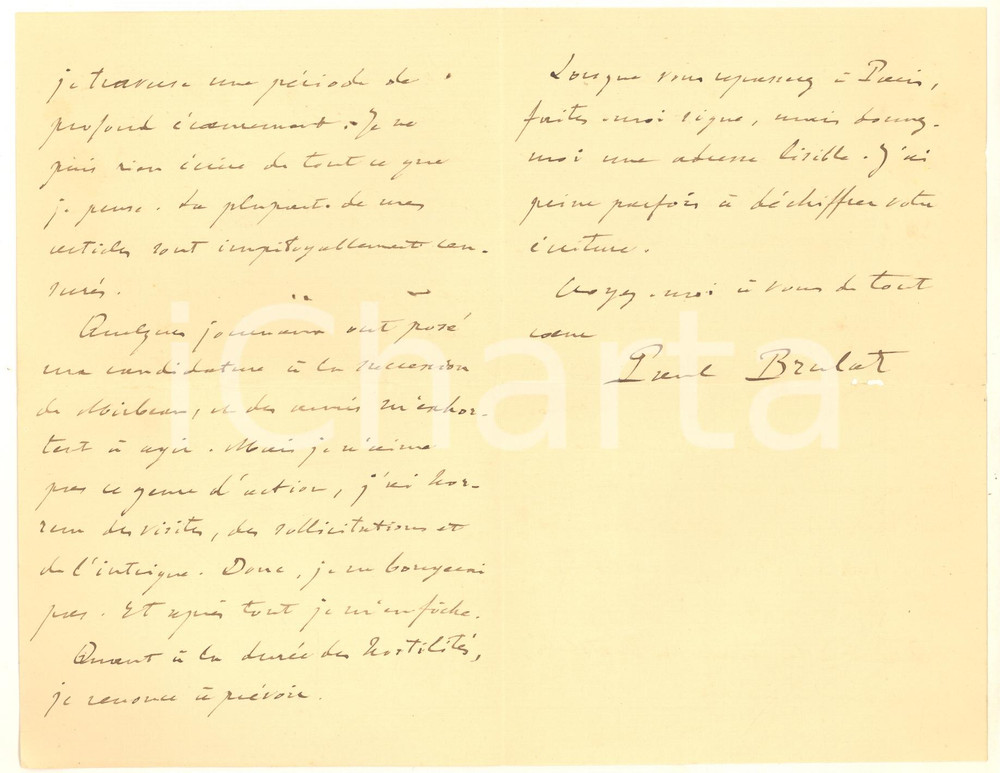 je traverse une période de
profond écœurement. Je ne
puis rien écrire de tout ce que
je pense. La plupart de mes
articles sont impitoyablement cen-
surés.
Quelques journaux ont posé
ma candidature à la succession
de Mirbeau, et des amis m'exhor-
tent à agir. Mais je n'aime
pas ce genre d'action, j'ai hor-
reur des visites, des sollicitations et
de l'intrigue. Donc, je ne bougerai
pas. Et après tout je m'en fiche.
Quant à la durée des hostilités,
je renonce à prévoir.
Lorsque vous repasserez à Paris,
faites-moi signe, mais donnez-
moi une adresse lisible. J'ai
peine parfois à déchiffrer votre
écriture.
Croyez-moi à vous de tout
cœur
Paul Brulat
iCharta